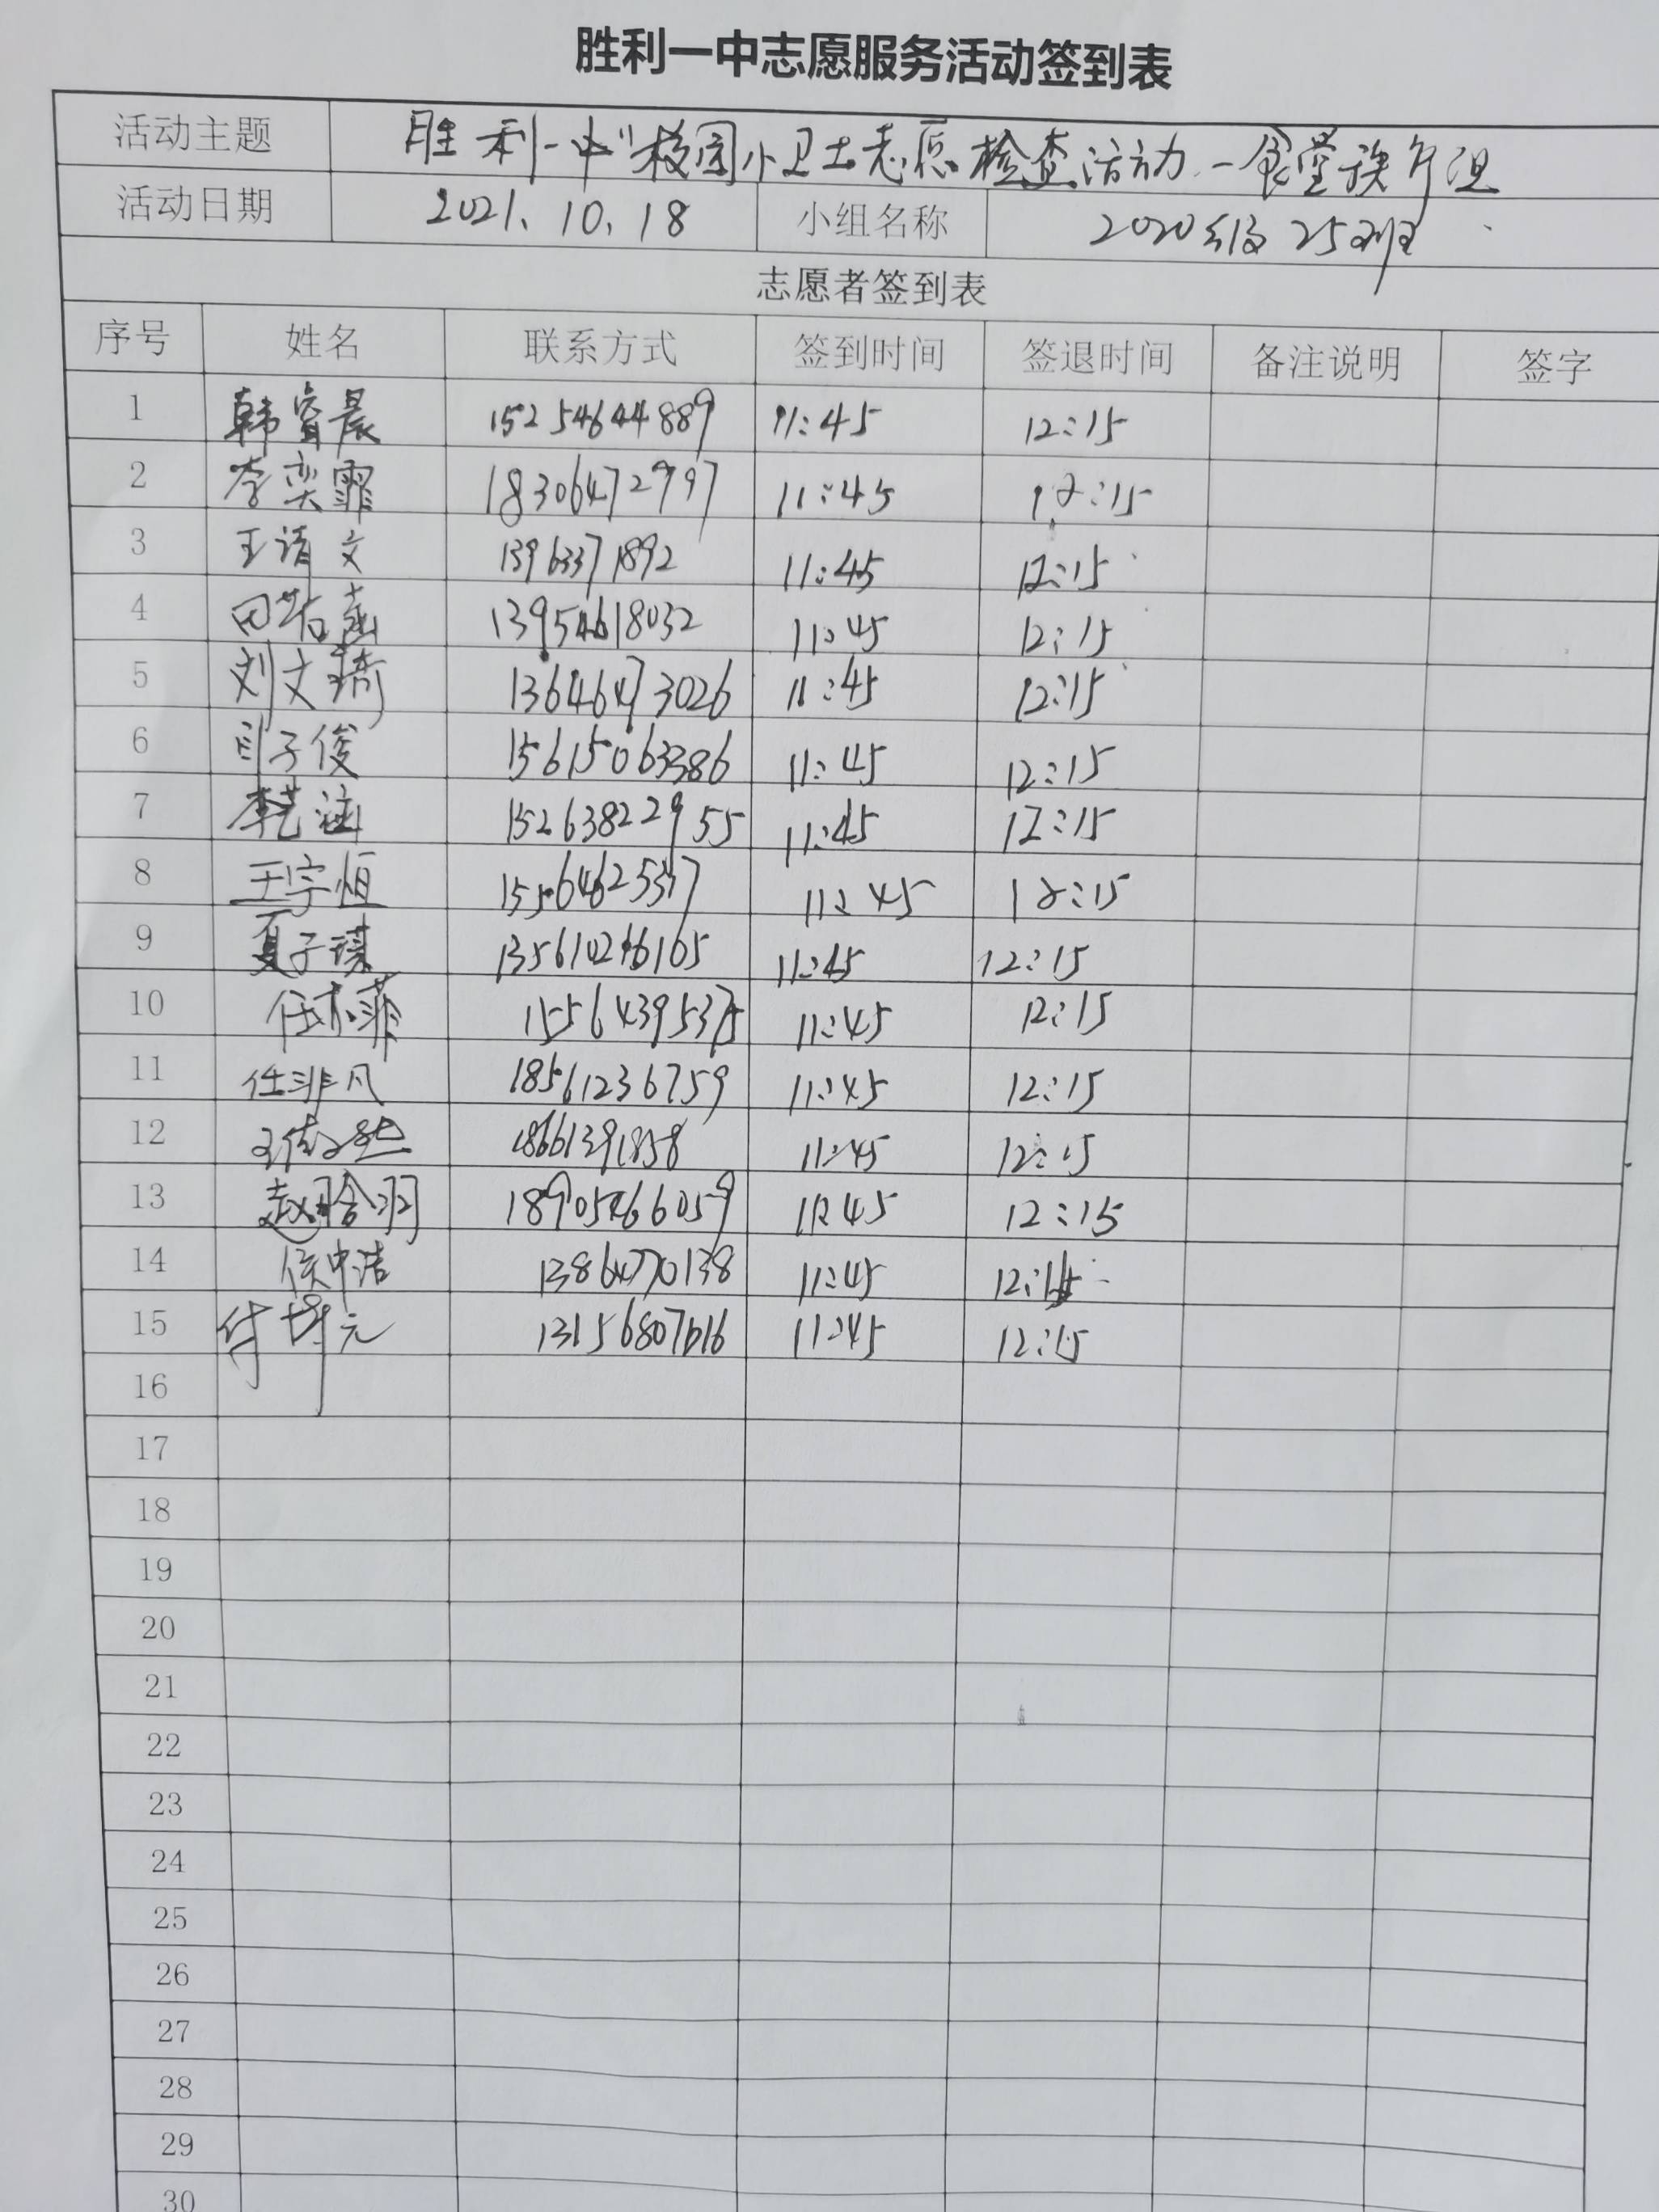 胜利一中志愿服务活动签到表
活动主题 胜利一中"校园小卫士志愿检查活动.一食堂
活动日期 2021.10.18 小组名称 2020级25班
志愿者签到表
序号 姓名 联系方式 签到时间 签退时间 备注说明 签字
1 韩睿晨 15254644889 11:45 12:15
2 李奕霏 18306472997 11:45 12:15
3 王诗文 13963371892 11:45 12:15
4 田若菡 13954618032 11:45 12:15
5 刘文琦 13646473026 11:45 12:15
6 子俊 15615063386 11:45 12:15
7 李艺涵 15263822955 11:45 12:15
8 王宇恒 11:45 12:15
9 夏子琪 11:45 12:15
10 11:45 12:15
11 任非凡 18561236759 11:45 12:15
12 18661391858 11:45 12:15
13 赵晗羽 18905466059 11:45 12:15
14 侯中洁 13864770138 11:45 12:15
15 11:45 12:15
16
17
18
19
20
21
22
23
24
25
26
27
28
29
30